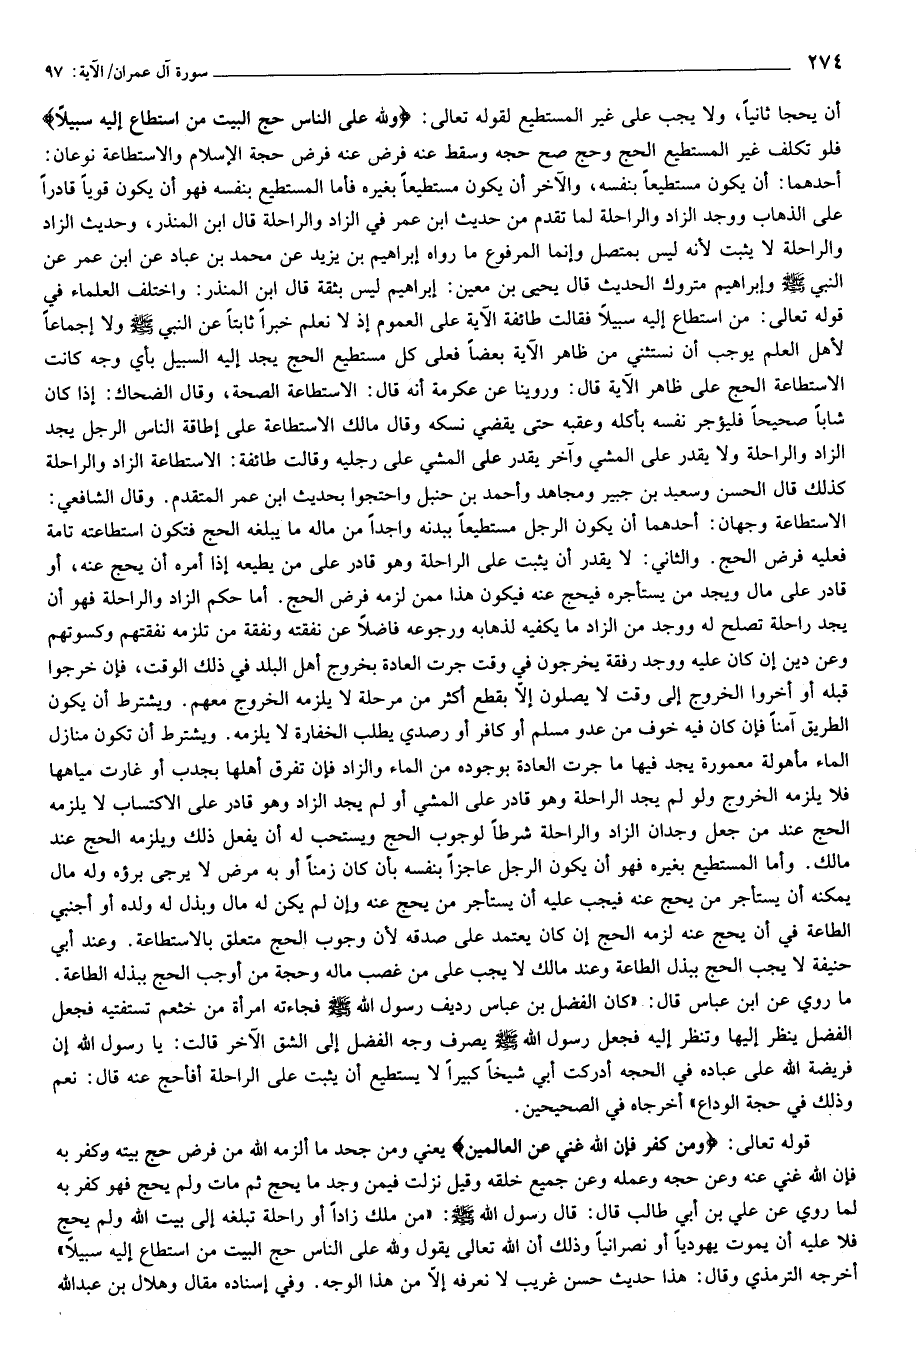 ٢٧٤ سورة آل عمران/ الآية: ٩٧
أن يحجا ثانياً، ولا يجب على غير المستطيع لقوله تعالى: ﴿ولله على الناس حج البيت من استطاع إليه سبيلاً﴾
فلو تكلف غير المستطيع الحج وحج صح حجه وسقط عنه فرض عنه فرض حجة الإسلام والاستطاعة نوعان:
أحدهما: أن يكون مستطيعاً بنفسه، والآخر أن يكون مستطيعاً بغيره فأما المستطيع بنفسه فهو أن يكون قوياً قادراً
على الذهاب ووجد الزاد والراحلة لما تقدم من حديث ابن عمر في الزاد والراحلة قال ابن المنذر، وحديث الزاد
والراحلة لا يثبت لأنه ليس بمتصل وإنما المرفوع ما رواه إبراهيم بن يزيد عن محمد بن عباد عن ابن عمر عن
النبي ﷺ وإبراهيم متروك الحديث قال يحيى بن معين: إبراهيم ليس بثقة قال ابن المنذر: واختلف العلماء في
قوله تعالى: من استطاع إليه سبيلاً فقالت طائفة الآية على العموم إذ لا نعلم خبراً ثابتاً عن النبي ﷺ ولا إجماعاً
لأهل العلم يوجب أن نستثني من ظاهر الآية بعضاً فعلى كل مستطيع الحج يجد إليه السبيل بأي وجه كانت
الاستطاعة الحج على ظاهر الآية قال: وروينا عن عكرمة أنه قال: الاستطاعة الصحة، وقال الضحاك: إذا كان
شاباً صحيحاً فليؤجر نفسه بأكله وعقبه حتى يقضي نسكه وقال مالك الاستطاعة على إطاقة الناس الرجل يجد
الزاد والراحلة ولا يقدر على المشي وآخر يقدر على المشي على رجليه وقالت طائفة: الاستطاعة الزاد والراحلة
كذلك قال الحسن وسعيد بن جبير ومجاهد وأحمد بن حنبل واحتجوا بحديث ابن عمر المتقدم. وقال الشافعي:
الاستطاعة وجهان: أحدهما أن يكون الرجل مستطيعاً ببدنه واجداً من ماله ما يبلغه الحج فتكون استطاعته تامة
فعليه فرض الحج. والثاني: لا يقدر أن يثبت على الراحلة وهو قادر على من يطيعه إذا أمره أن يحج عنه، أو
قادر على مال ويجد من يستأجره فيحج عنه فيكون هذا ممن لزمه فرض الحج. أما حكم الزاد والراحلة فهو أن
يجد راحلة تصلح له ووجد من الزاد ما يكفيه لذهابه ورجوعه فاضلاً عن نفقته ونفقة من تلزمه نفقتهم وكسوتهم
وعن دين إن كان عليه ووجد رفقة يخرجون في وقت جرت العادة بخروج أهل البلد في ذلك الوقت، فإن خرجوا
قبله أو أخروا الخروج إلى وقت لا يصلون إلاّ بقطع أكثر من مرحلة لا يلزمه الخروج معهم. ويشترط أن يكون
الطريق آمناً فإن كان فيه خوف من عدو مسلم أو كافر أو رصدي يطلب الخفارة لا يلزمه. ويشترط أن تكون منازل
الماء مأهولة معمورة يجد فيها ما جرت العادة بوجوده من الماء والزاد فإن تفرق أهلها بجدب أو غارت مياهها
فلا يلزمه الخروج ولو لم يجد الراحلة وهو قادر على المشي أو لم يجد الزاد وهو قادر على الاكتساب لا يلزمه
الحج عند من جعل وجدان الزاد والراحلة شرطاً لوجوب الحج ويستحب له أن يفعل ذلك ويلزمه الحج عند
مالك. وأما المستطيع بغيره فهو أن يكون الرجل عاجزاً بنفسه بأن كان زمناً أو به مرض لا يرجى برؤه وله مال
يمكنه أن يستأجر من يحج عنه فيجب عليه أن يستأجر من يحج عنه وإن لم يكن له مال وبذل له ولده أو أجنبي
الطاعة في أن يحج عنه لزمه الحج إن كان يعتمد على صدقه لأن وجوب الحج متعلق بالاستطاعة. وعند أبي
حنيفة لا يجب الحج ببذل الطاعة وعند مالك لا يجب على من غصب ماله وحجة من أوجب الحج ببذله الطاعة.
ما روي عن ابن عباس قال: «كان الفضل بن عباس رديف رسول الله ﷺ فجاءته امرأة من خثعم تستفتيه فجعل
الفضل ينظر إليها وتنظر إليه فجعل رسول الله ﷺ يصرف وجه الفضل إلى الشق الآخر قالت: يا رسول الله إن
فريضة الله على عباده في الحجه أدركت أبي شيخاً كبيراً لا يستطيع أن يثبت على الراحلة أفأحج عنه قال: نعم
وذلك في حجة الوداع» أخرجاه في الصحيحين.
قوله تعالى: ﴿ومن كفر فإن الله غني عن العالمين﴾ يعني ومن جحد ما ألزمه الله من فرض حج بيته وكفر به
فإن الله غني عنه وعن حجه وعمله وعن جميع خلقه وقيل نزلت فيمن وجد ما يحج ثم مات ولم يحج فهو كفر به
لما روي عن علي بن أبي طالب قال: قال رسول الله ﷺ: «من ملك زاداً أو راحلة تبلغه إلى بيت الله ولم يحج
فلا عليه أن يموت يهودياً أو نصرانياً وذلك أن الله تعالى يقول ولله على الناس حج البيت من استطاع إليه سبيلاً»
أخرجه الترمذي وقال: هذا حديث حسن غريب لا نعرفه إلاّ من هذا الوجه. وفي إسناده مقال وهلال بن عبدالله